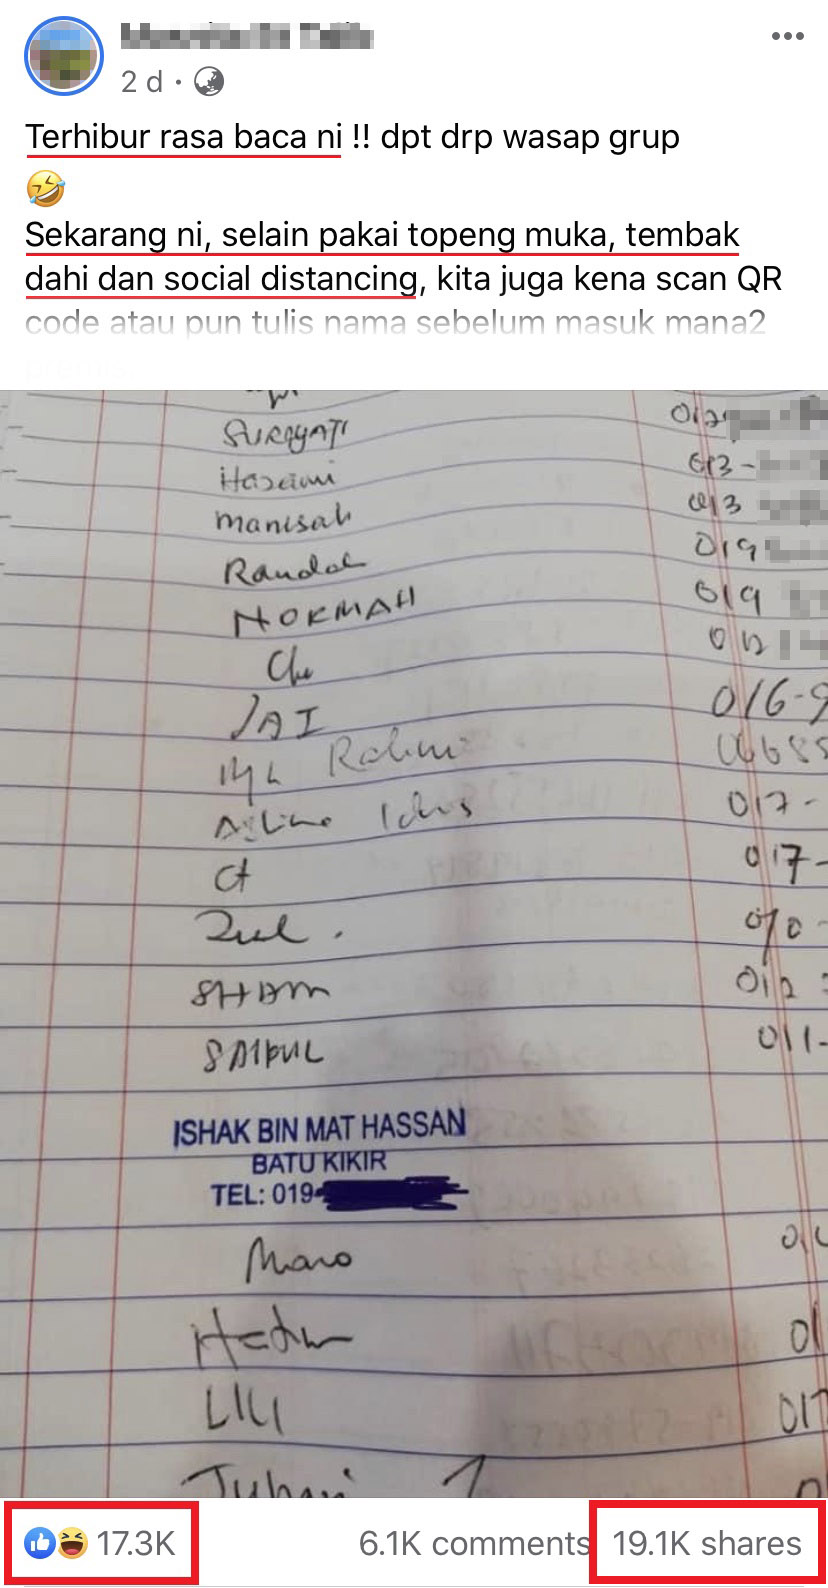 2 d ·
Terhibur rasa baca ni !! dpt drp wasap grup
🤣
Sekarang ni, selain pakai topeng muka, tembak
dahi dan social distancing, kita juga kena scan QR
code atau pun tulis nama sebelum masuk mana2
premis
SURAYATI 012
Haseimi 013-
manisah 013
Randal 019
NORMAH 019
Che 012
JAI 016-9
Rahim
Idrus 017-
Ct 017-
Zul. 010-
SHAM 012
SAIPUL 011-
ISHAK BIN MAT HASSAN
BATU KIKIR
TEL: 019-
LILI 017
17.3K 6.1K comments 19.1K shares